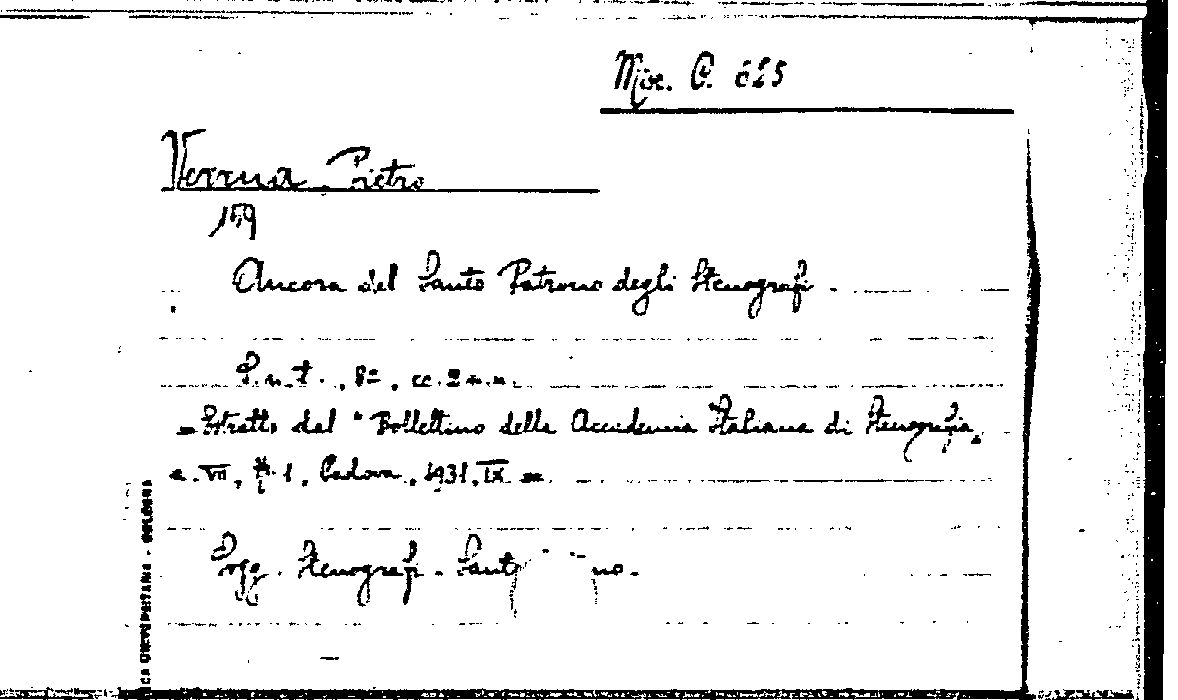 Misc. C. 625
Verrua Pietro
159
Ancora del Santo Patrono degli Stenografi.
S.n.t., 8º, cc. 2 n.n.
= Estratto dal "Bollettino della Accademia Italiana di Stenografia,,
a. VII, f. 1, Padova, 1931, IX =
Sogg. Stenografi - Santo